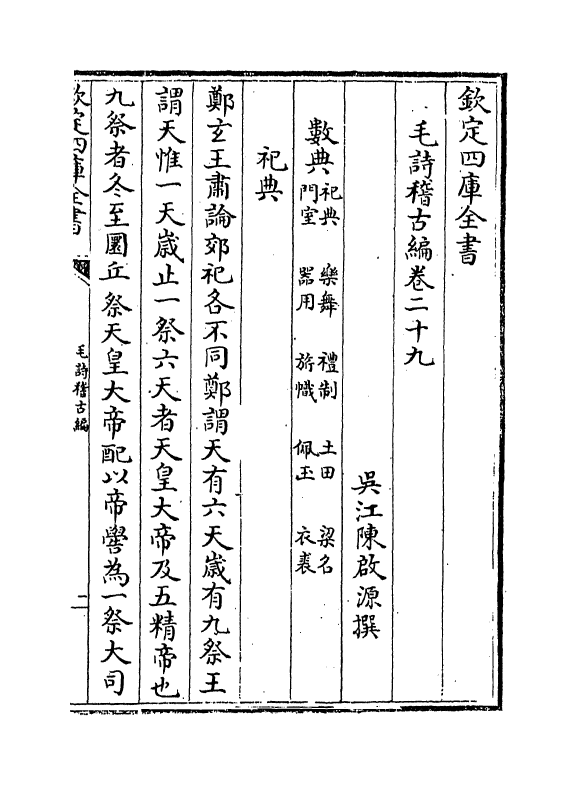 欽定四庫全書
毛詩稽古編卷二十九
吳江陳啟源撰
數典
祀典 樂舞 禮制 土田 梁名
門室 器用 旂幟 佩玉 衣裘
祀典
鄭玄王肅論郊祀各不同鄭謂天有六天歲有九祭王
謂天惟一天歲止一祭六天者天皇大帝及五精帝也
九祭者冬至圜丘祭天皇大帝配以帝嚳為一祭大司
欽定四庫全書
毛詩稽古編